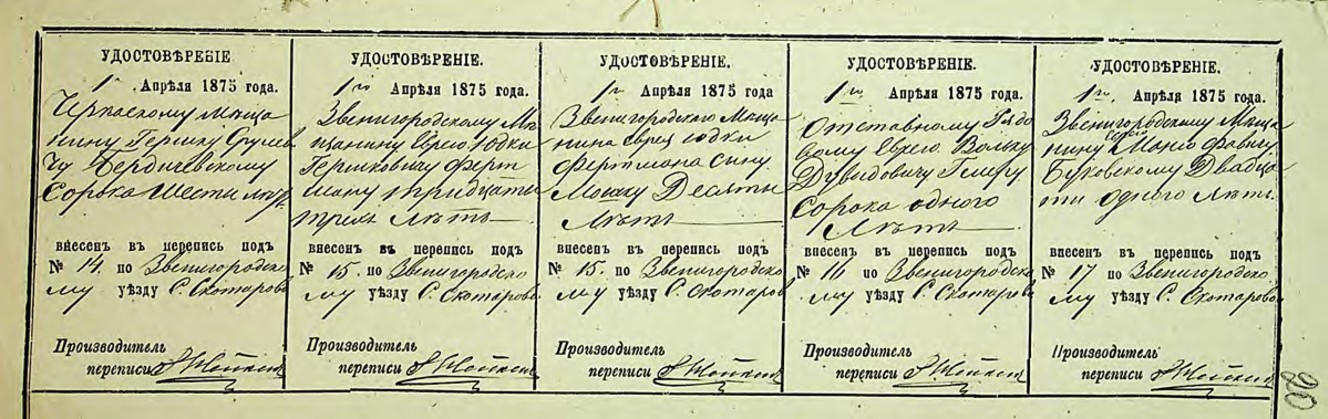 УДОСТОВѢРЕНІЕ
1го Апрѣля 1875 года.
Черкаскому Мѣща
нину Гершку Сруліев
чу Бердичевскому
Сорока Шести лѣтъ
внесенъ въ перепись подъ
№ 14. по Звенигородско
му уѣзду С. Скотарово
Производитель
переписи
УДОСТОВѢРЕНІЕ.
1го Апрѣля 1875 года.
Звенигородскому Мѣ
щанину Еврею Юдки
Гершковичу Ферт
ману тридцати
трехъ лѣтъ
внесенъ въ перепись подъ
№ 15. по Звенигородско
му уѣзду С. Скотарово
Производитель
переписи
УДОСТОВѢРЕНІЕ.
1го Апрѣля 1875 года
Звенигородского Мѣща
нина Еврея Юдки
Фертмана сину
Мошку Десяти
лѣтъ
внесенъ въ перепись подъ
№ 15. по Звенигородско
му уѣзду С. Скотарово
Производитель
переписи
УДОСТОВѢРЕНІЕ.
1го Апрѣля 1875 года.
Отставному Рядо
вому Еврею Вольку
Дувидовичу Гелеру
Сорока одного
лѣтъ
внесенъ въ перепись подъ
№ 16 по Звенигородско
му уѣзду С. Скотарово
Производитель
переписи
УДОСТОВѢРЕНІЕ.
1го Апрѣля 1875 года.
Звенигородскому Мѣща
нину
Буковскому Двадца
ти одного лѣтъ.
внесенъ въ перепись подъ
№ 17 по Звенигородско
му уѣзду С. Скотарово
Производитель
переписи